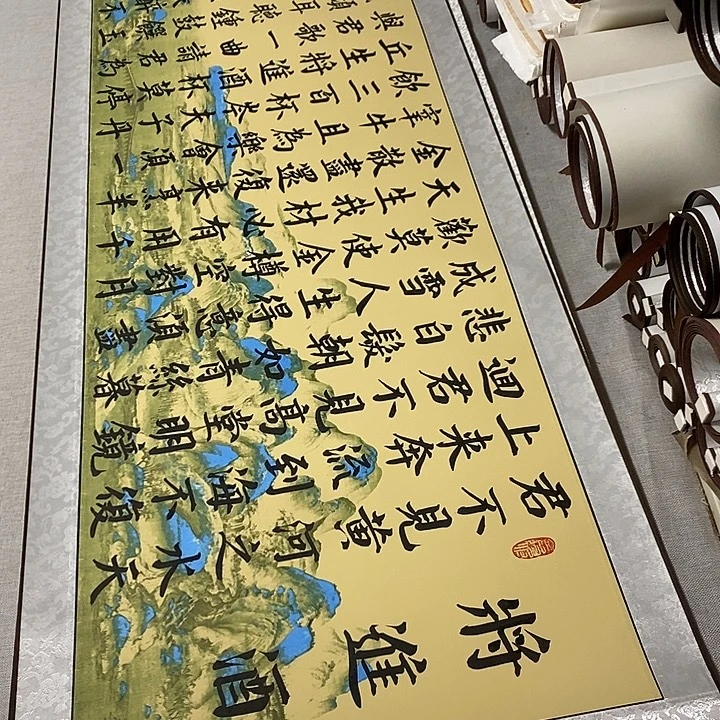 將進酒
君不見黃河之水天
上来奔流到海不復
迴君不見高堂明鏡
悲白髮朝如青絲暮
成雪人生得意須盡
歡莫使金樽空對月
天生我材必有用千
金散盡還復来烹羊
宰牛且為樂會須一
飲三百杯岑夫子丹
丘生將進酒杯莫停
與君歌一曲請君為
傾耳聽鐘鼓饌玉